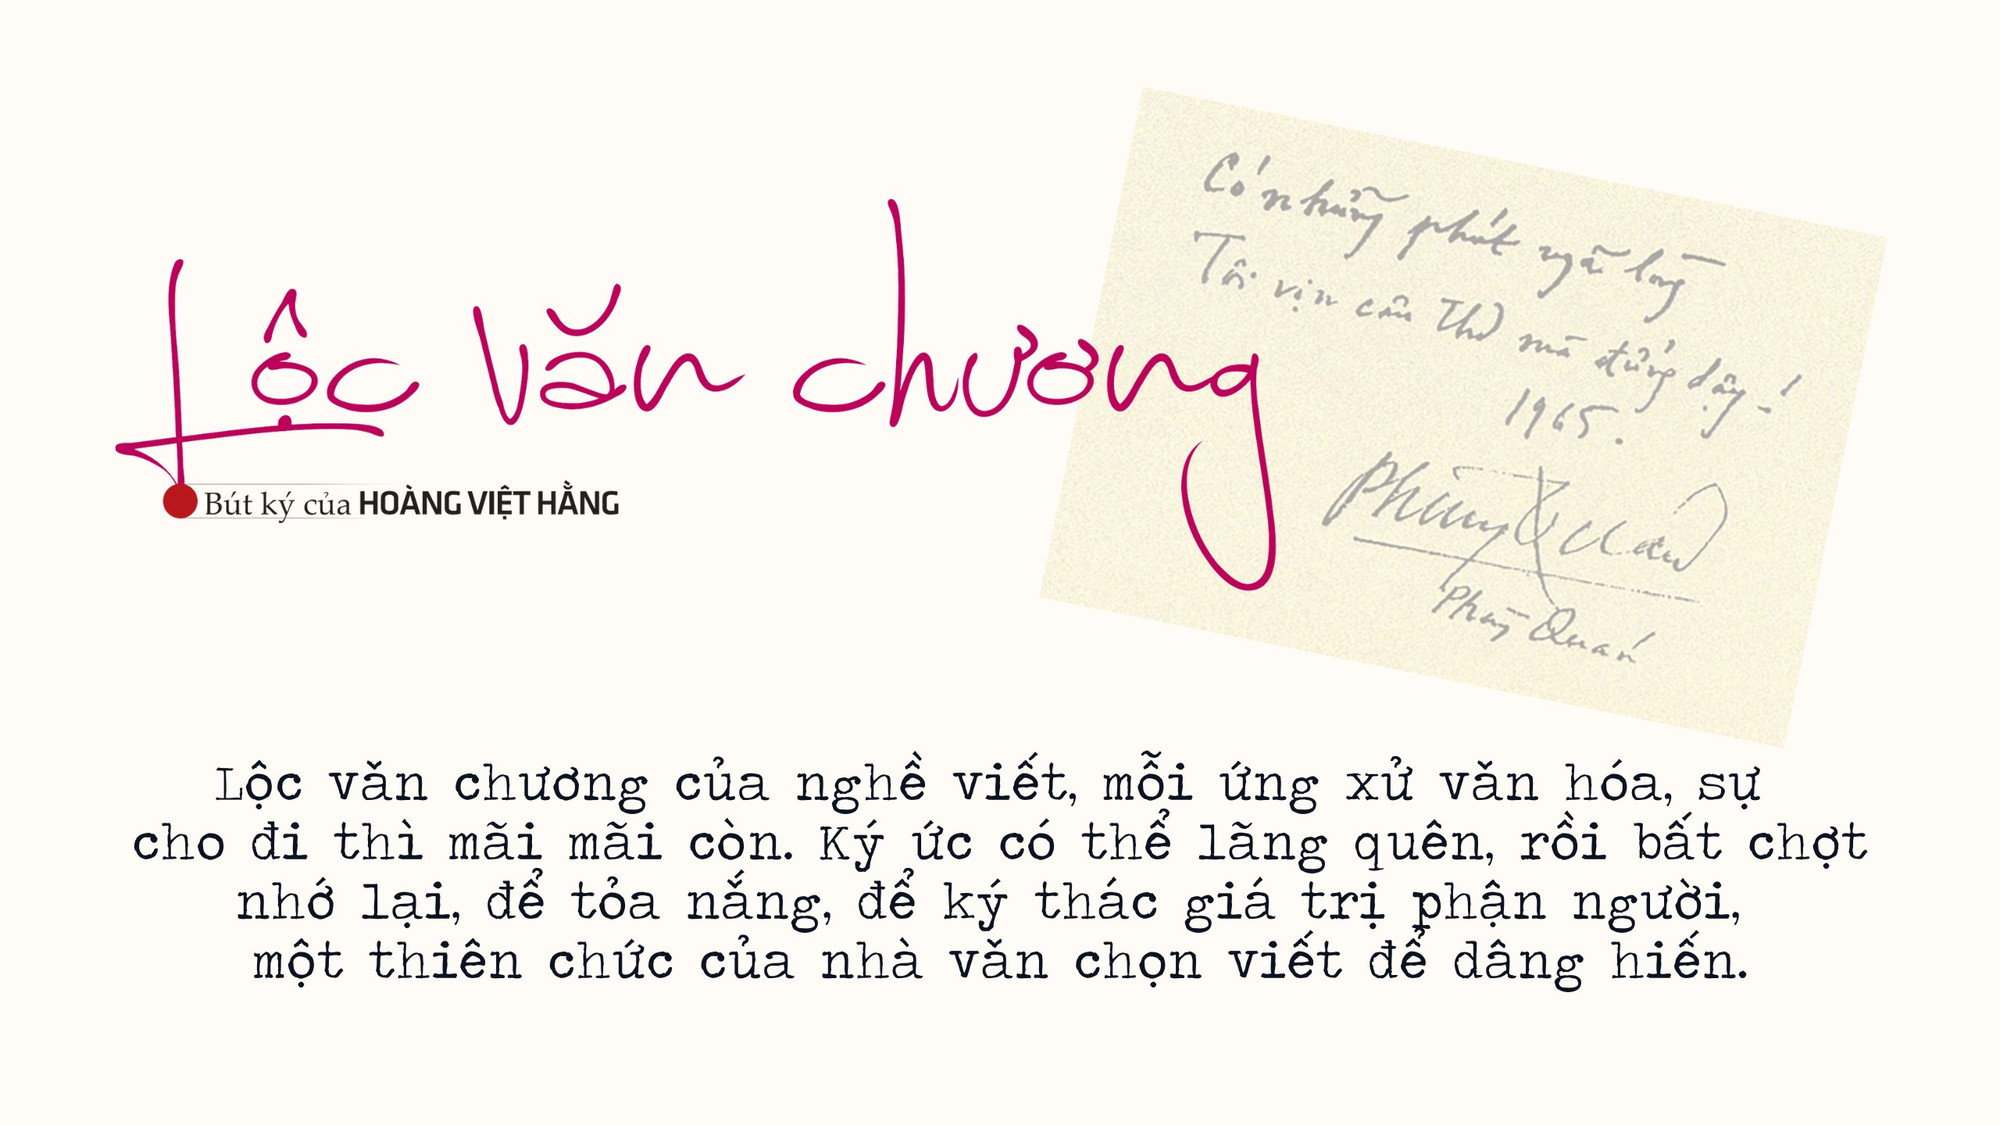 Lộc văn chương
Bút ký của HOÀNG VIỆT HẰNG
Có những phút ngã lòng
Tôi vịn câu Thơ mà đứng dậy!
1965.
Phùng Quán
Phùng Quán
Lộc văn chương của nghề viết, mỗi ứng xử văn hóa, sự
cho đi thì mãi mãi còn. Ký ức có thể lãng quên, rồi bất chợt
nhớ lại, để tỏa nắng, để ký thác giá trị phận người,
một thiên chức của nhà văn chọn viết để dâng hiến.